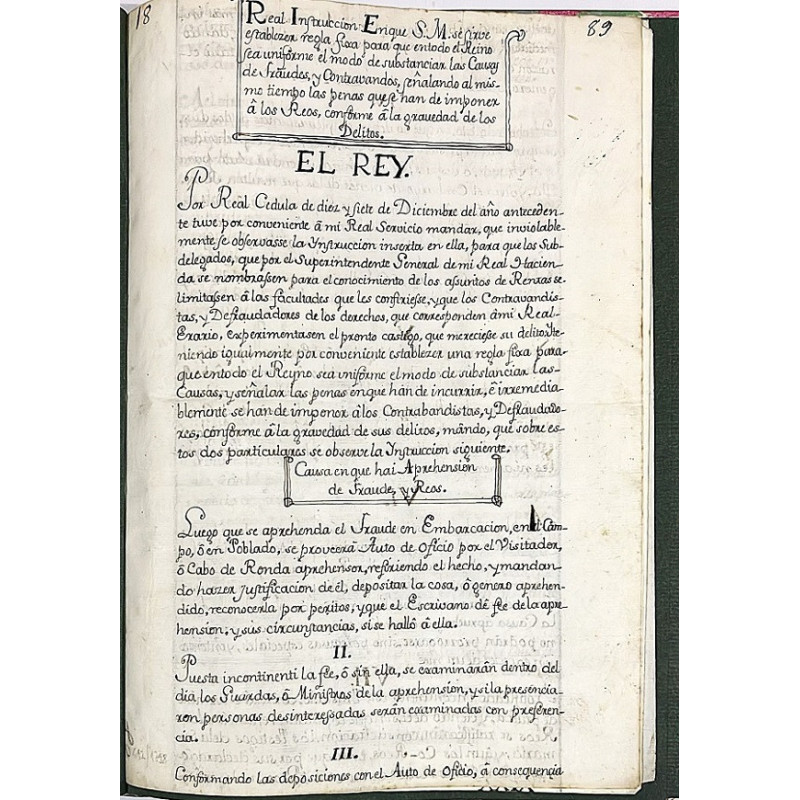 18
89
Real Instruccion En que S. M. se sirve
establezer regla fixa para que en todo el Reino
sea uniforme el modo de substanciar las Causas
de Fraudes, y Contravandos, señalando al mis-
mo tiempo las penas que se han de imponer
â los Reos, conforme â la gravedad de los
Delitos.
EL REY.
Por Real Cedula de diez y siete de Diciembre del año anteceden-
te tuve por conveniente â mi Real Servicio mandar, que inviolable-
mente se observasse la Ynstruccion inserta en ella, para que los Sub-
delegados, que por el Superintendente General de mi Real Hacien-
da se nombrassen para el conocimiento de los asuntos de Rentas se-
limitassen â las facultades que les confiriesse, y que los Contravandis-
tas, y Defraudadores de los derechos, que corresponden â mi Real-
Erario, experimentasen el pronto castigo, que mereciesse su delito, y te-
niendo igualmente por conveniente establezer una regla fixa para-
que en todo el Reyno sea uniforme el modo de substanciar las-
Causas, y señalar las penas en que han de incurrir, ê irremedia-
blemente se han de imponer â los Contrabandistas, y Defraudado-
res, conforme â la gravedad de sus delitos, mando, que sobre es-
tos dos particulares se observe la Ynstruccion siguiente.
Causa en que hai Aprehension
de Fraude, y Reos.
Luego que se aprehenda el Fraude en Embarcacion, en el Cam-
po, ô en Poblado, se proveerâ Auto de Oficio por el Visitador,
ô Cabo de Ronda âprehensor, refiriendo el hecho, y mandan-
do hazer justificacion de êl, depositar la cosa, ô genero aprehen-
dido, reconocerla por peritos, y que el Escrivano dê fee de la apre-
hension, y sus circunstancias, si se hallô â ella.
II.
Puesta incontinenti la fee, ô sin ella, se examinarân dentro del
dia los Guardas, ô Ministros de la aprehension, y si la presencia-
ron personas desinteressadas serân examinadas con preferen-
cia.
III.
Conformando las deposiciones con el Auto de Oficio, â consequencia